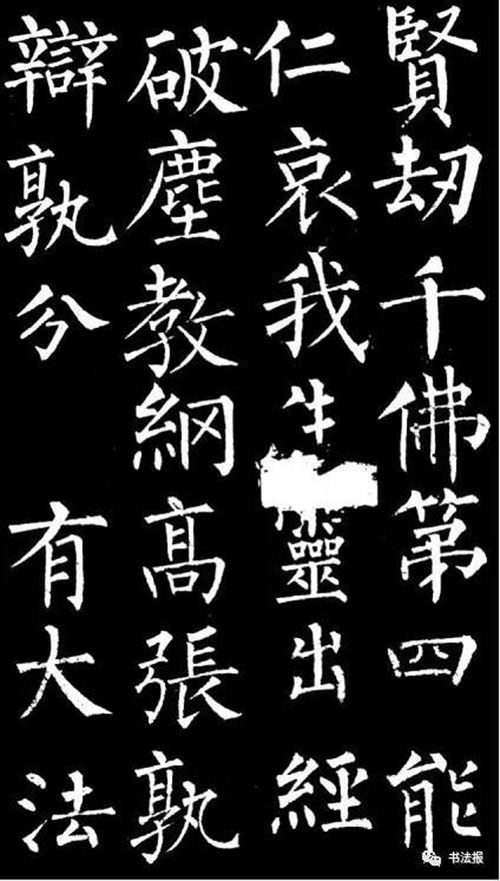 賢刼千佛第四能
仁哀我靈出經
破塵教網髙張孰
辯孰分有大法
书法报